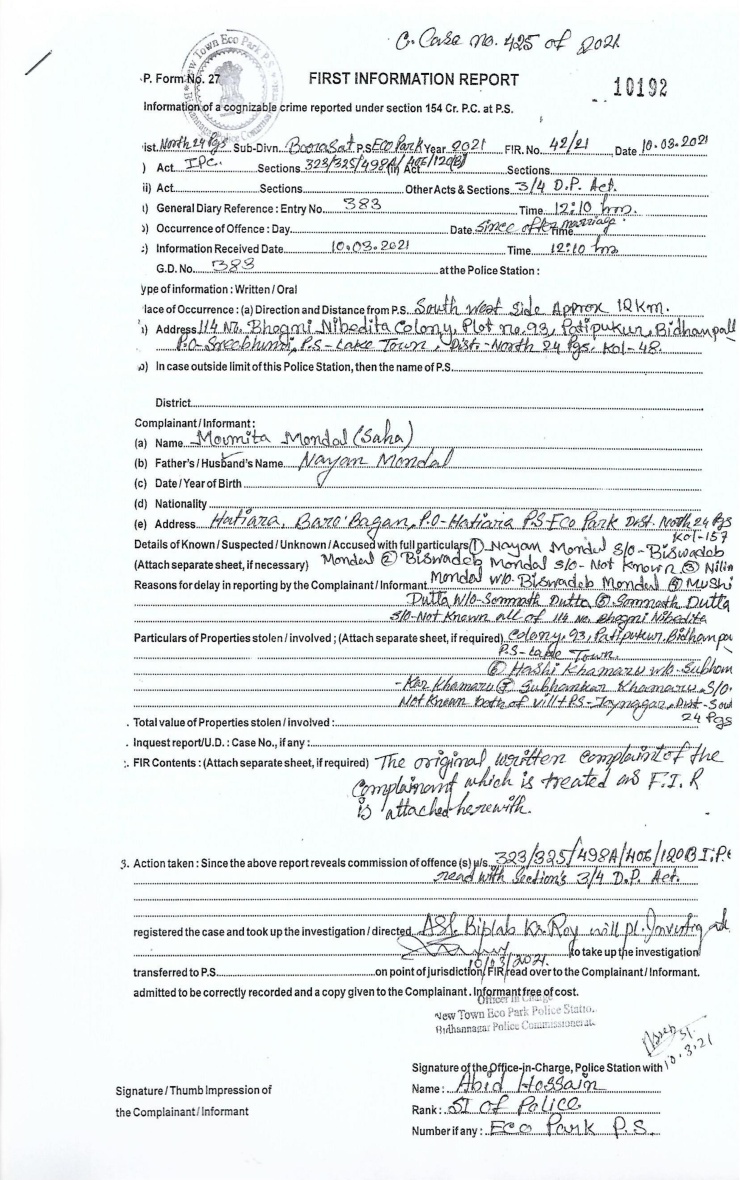 C. Case no. 425 of 2021
New Town Eco Park P.S.
P. Form No. 27
FIRST INFORMATION REPORT
10192
Information of a cognizable crime reported under section 154 Cr. P.C. at P.S.
ist. North 24 Pgs Sub-Divn. Baarasat P.S Eco Park Year 2021 FIR. No. 42/21 Date 10.03.2021
) Act IPC. Sections 323/325/498A/406/120(B) Act Sections
ii) Act Sections Other Acts & Sections 3/4 D.P. Act.
ı) General Diary Reference : Entry No. 383 Time 12:10 hrs.
ɔ) Occurrence of Offence : Day Date since after marriage Time
:) Information Received Date 10.03.2021 Time 12:10 hrs
G.D. No. 383 at the Police Station :
ype of information : Written / Oral
lace of Occurrence : (a) Direction and Distance from P.S. South west side Approx 12 km.
ı) Address 114 No. Bhagni Nibedita Colony, Plot no. 93, Patipukur, Bidhanpall
P.O- Sreebhumi, P.S- Lake Town, Dist.- North 24 Pgs. Kol-48.
ɔ) In case outside limit of this Police Station, then the name of P.S.
District
Complainant / Informant :
(a) Name Moumita Mondal (Saha)
(b) Father's / Husband's Name Nayan Mondal
(c) Date / Year of Birth
(d) Nationality
(e) Address Hatiara, Baro Bagan, P.O- Hatiara P.S- Eco Park Dist. North 24 Pgs
Kol-157
Details of Known / Suspected / Unknown / Accused with full particulars ① Nayan Mondal S/O- Biswadeb
(Attach separate sheet, if necessary) Mondal ② Biswadeb Mondal S/o- Not Known ③ Nilim
Reasons for delay in reporting by the Complainant / Informant Mondal w/o- Biswadeb Mondal ④ Mushi
Dutta W/o- Somnath Dutta ⑤ Somnath Dutta
S/o- Not Known all of 114 No. Bhagni Nibedita
Particulars of Properties stolen / involved ; (Attach separate sheet, if required) Colony, 93, Patipukur, Bidhanpa
P.S- Lake Town.
⑥ Hashi Khamaru w/o- Subham
-Kar Khamaru ⑦ Subhamkar Khamaru S/O.
Not Known both of vill + P.S- Joynagar, Dist- Sou
24 Pgs
. Total value of Properties stolen / involved :
. Inquest report / U.D. : Case No., if any :
:. FIR Contents : (Attach separate sheet, if required) The original written complaint of the
Complainant which is treated as F.I.R
is attached herewith.
3. Action taken : Since the above report reveals commission of offence (s) u/s. 323/325/498A/406/120B I.P.C
read with Section's 3/4 D.P. Act.
registered the case and took up the investigation / directed ASI. Biplab Kr. Roy will pl. Investig
to take up the investigation
10/03/2021.
transferred to P.S. on point of jurisdiction, FIR read over to the Complainant / Informant.
admitted to be correctly recorded and a copy given to the Complainant. Informant free of cost.
Officer in Charge
New Town Eco Park Police Statio
Bidhannagar Police Commissionerate
10.3.21
Signature of the Office-in-Charge, Police Station with
Name : Abid Hossain
Rank : SI of Police
Number if any : Eco Park P.S.
Signature / Thumb Impression of
the Complainant / Informant